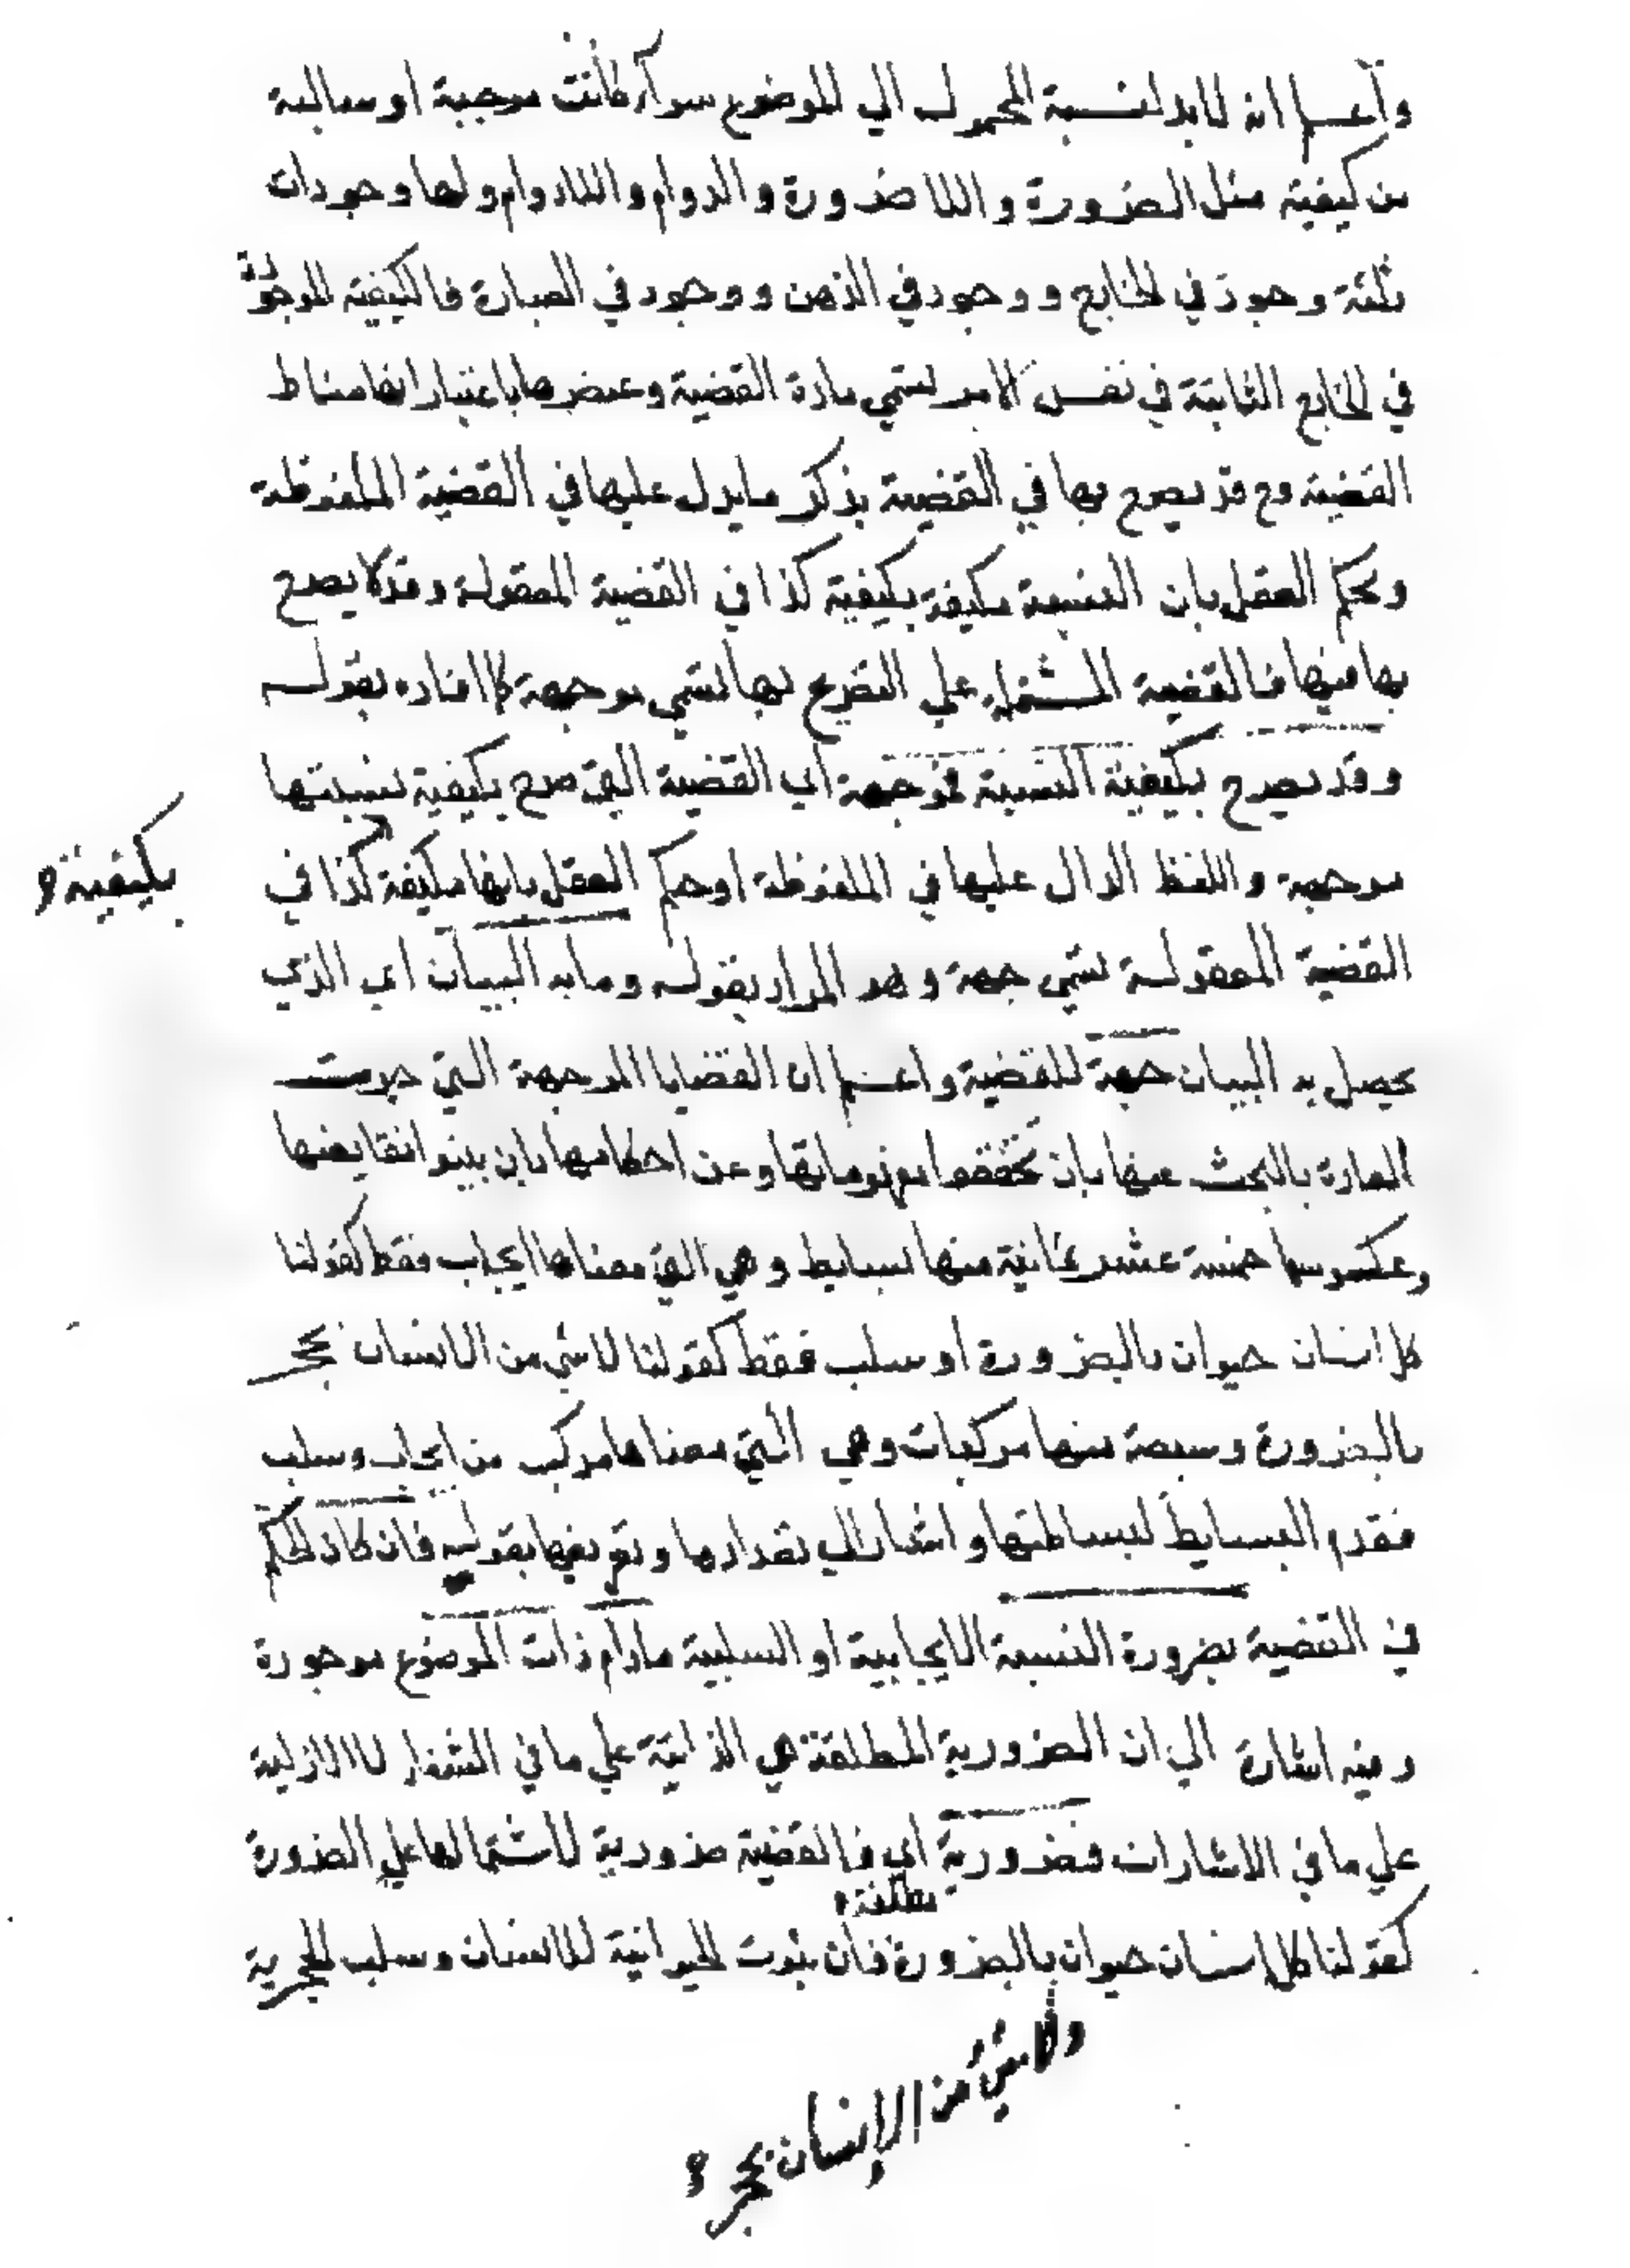 واعلم ان لابد لنسبة المحمول الي الموضوع سواء كانت موجبة او سالبة
من كيفية مثل الضرورة واللا ضرورة والدوام واللادوام ولها وجودات
ثلثة وجود في الخارج ووجود في الذهن ووجود في العبارة فالكيفية الموجودة
في الخارج الثابتة في نفس الامر تسمي مادة القضية وعنصرها باعتبار انها مناط
القضية وح قد يصرح بها في القضية بذكر ما يدل عليها في القضية الملفوظة
وبحكم العقل بان النسبة مكيفة بكيفية كذا في القضية المعقولة وقد لا يصرح
بها فيها فالقضية المشتملة علي التصريح بها تسمي موجهة كما افاده بقوله
وقد يصرح بكيفية النسبة فموجهة اي القضية التي صرح بكيفية نسبتها
موجهة واللفظ الدال عليها في الملفوظة او حكم العقل بانها مكيفة كذا في
بكيفية
القضية المعقولة تسمي جهة وهو المراد بقوله وما به البيان اي الذي
يحصل به البيان جهة للقضية واعلم ان القضايا الموجهة التي جرت
العادة بالبحث عنها بان تحققوا مفهوماتها وعن احكامها بان بينوا نقايضها
وعكوسها خمسة عشر ثمانية منها بسايط وهي التي معناها ايجاب فقط كقولنا
كل انسان حيوان بالضرورة او سلب فقط كقولنا لا شي من الانسان بحجر
بالضرورة وسبعة منها مركبات وهي التي معناها مركب من ايجاب وسلب
فقدم البسايط لبساطتها واشار الي تعدادها وتعريفها بقوله فان كان الحكم
في القضية بضرورة النسبة الايجابية او السلبية مادام ذات الموضوع موجودة
وفيه اشارة الي ان الضرورية المطلقة هي الذاتية علي ما في الشفا لا الازلية
علي ما في الاشارات فضرورية اي فالقضية ضرورية لاشتمالها علي الضرورة
مطلقة
كقولنا كل انسان حيوان بالضرورة فان ثبوت الحيوانية للانسان وسلب الحجرية
ولا شيء من الإنسان بحجر